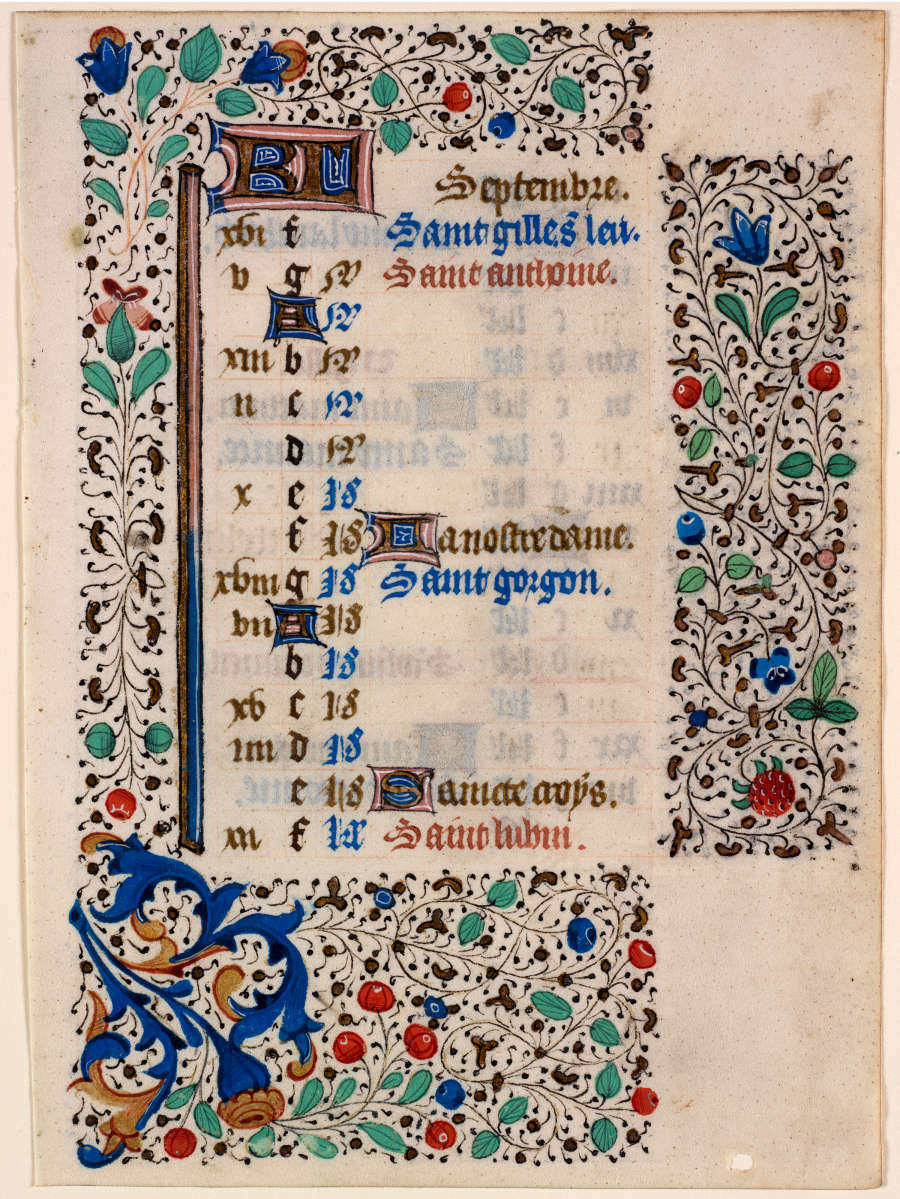 KL Septembre.
xvi f Saint gilles leu.
v g N Saint anthoine.
A N
xiii b N
ii c N
d N
x e Id
f Id La nostre dame.
xviii g Id Saint gorgon.
vii A Id
b Id
xv c Id
iiii d Id
e Id Saincte croys.
xii f kl Saint lubin.